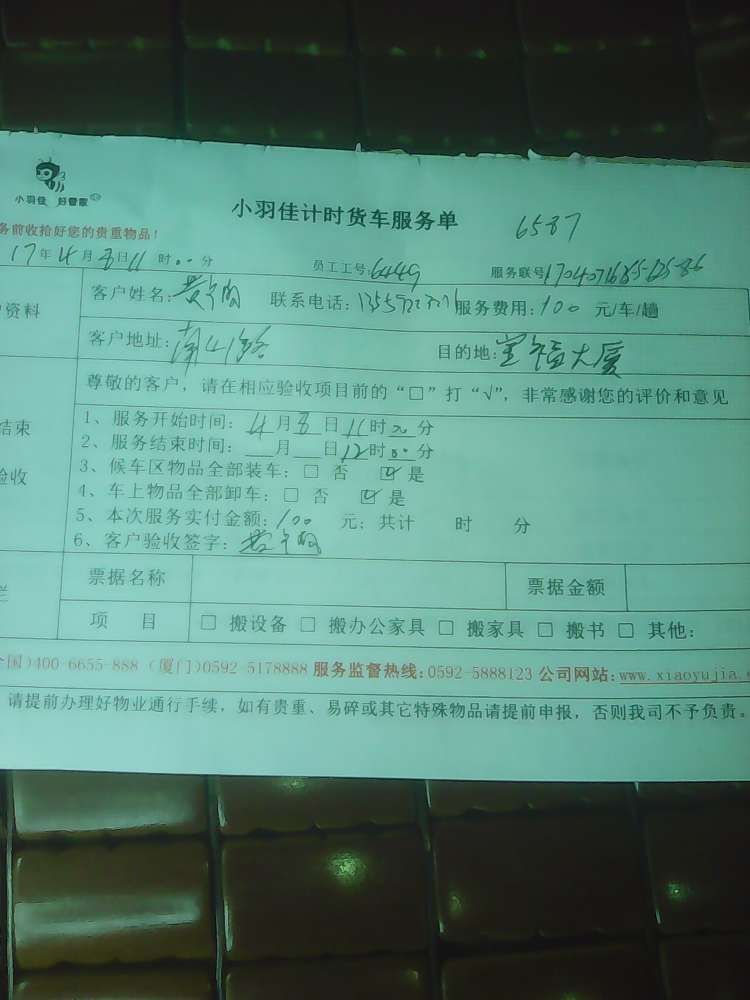 小羽佳 好管家
小羽佳计时货车服务单
6587
务前收拾好您的贵重物品！
17年4月8日11时00分 员工工号:6449 服务联号
资料
客户姓名: 联系电话: 服务费用:100 元/车/趟
客户地址:南山路 目的地:
尊敬的客户，请在相应验收项目前的“□”打“√”，非常感谢您的评价和意见
结束
验收
1、服务开始时间:4月8日11时00分
2、服务结束时间:__月__日12时00分
3、候车区物品全部装车:□ 否 ☑ 是
4、车上物品全部卸车:□ 否 ☑ 是
5、本次服务实付金额:100 元;共计 时 分
6、客户验收签字:
栏
票据名称 票据金额
项 目 □ 搬设备 □ 搬办公家具 □ 搬家具 □ 搬书 □ 其他:
国)400-6655-888 (厦门)0592-5178888 服务监督热线:0592-5888123 公司网站:www.xiaoyujia.
请提前办理好物业通行手续，如有贵重、易碎或其它特殊物品请提前申报，否则我司不予负责。